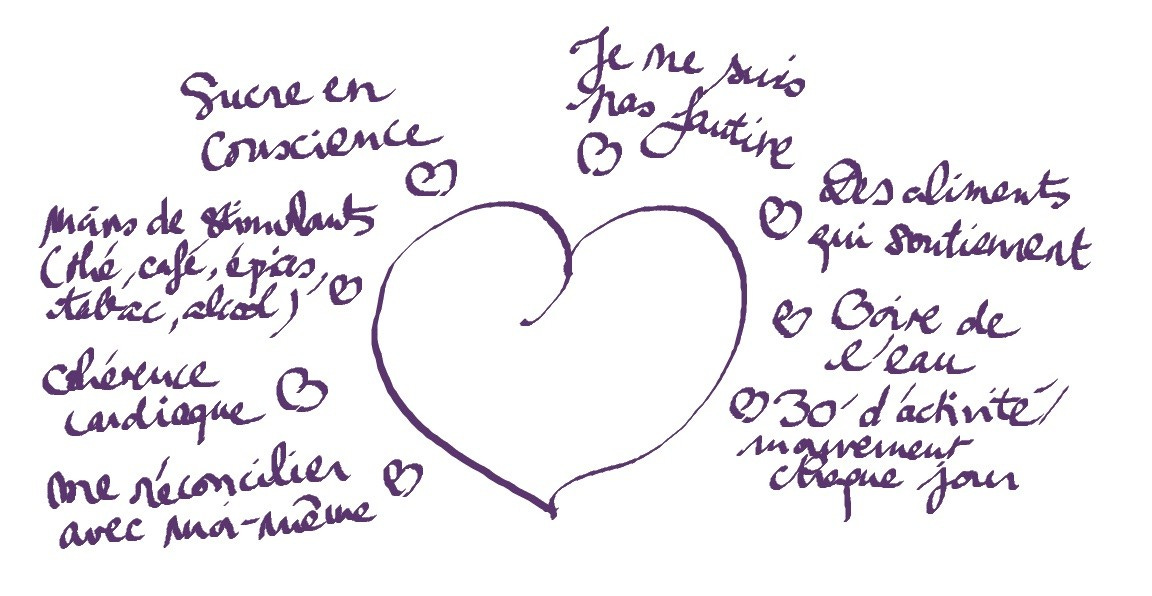 Sucre en
Conscience
Je ne suis
pas fautive
Moins de stimulants
(thé, café, épices,
tabac, alcool)
Des aliments
qui soutiennent
Cohérence
cardiaque
Boire de
l'eau
30' d'activité/
mouvement
chaque jour
me réconcilier
avec moi-même